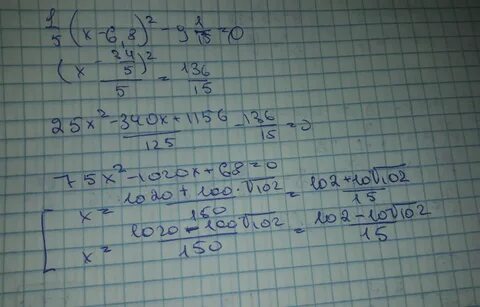 1/5 (x - 6,8)² - 9 1/15 = 0
(x - 34/5)² / 5 = 136/15
(25x² - 340x + 1156)/125 - 136/15 = 0
75x² - 1020x + 68 = 0
x = (1020 + 100·√102)/150 = (102 + 10√102)/15
x = (1020 - 100√102)/150 = (102 - 10√102)/15